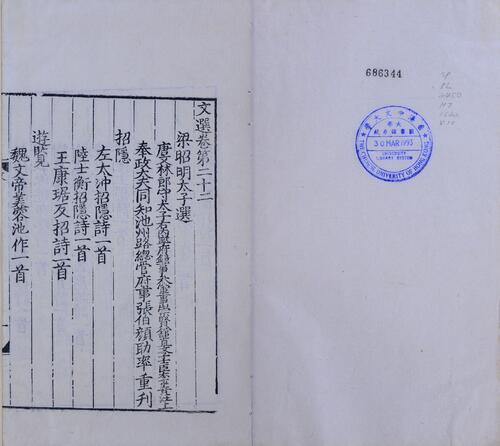 文選卷第二十二
梁昭明太子選
唐文林郎守太子右內率府錄事參軍事崇賢館直學士臣李善注上
奉政大夫同知池州路總管府事張伯顏助率重刊
招隱
左太沖招隱詩一首
陸士衡招隱詩一首
王康琚反招詩一首
遊覽
魏文帝芙蓉池作一首
686344
PL
2450
香港中文大學
30 MAR 1993
UNIVERSITY
LIBRARY SYSTEM
THE CHINESE UNIVERSITY OF HONG KONG